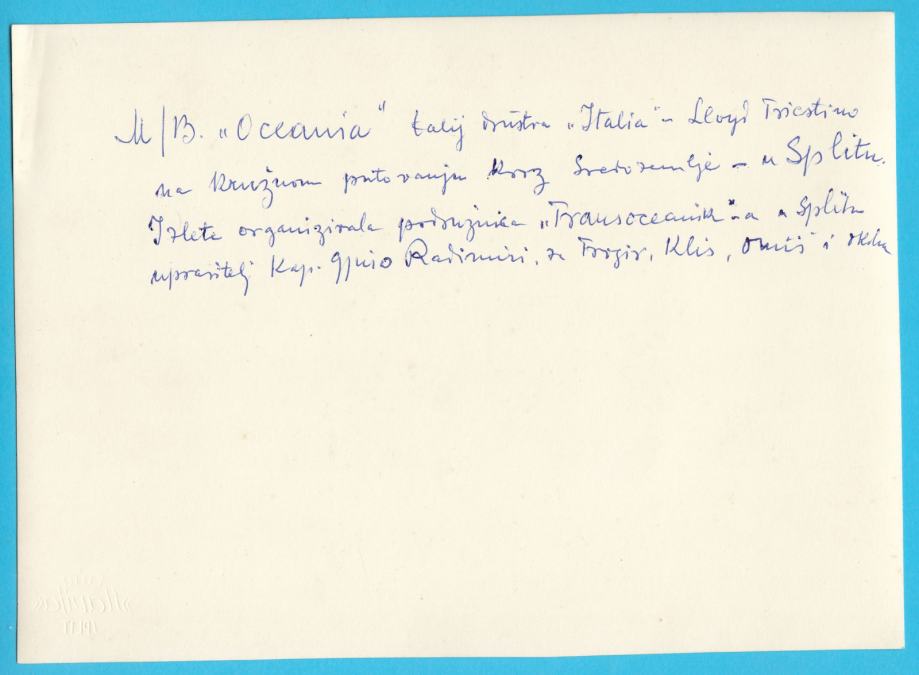 M/B. „Oceania" talij društva „Italia"- Lloyd Triestino
na kružnom putovanju kroz Sredozemlje - u Splitu.
Izlete organizirala podružnica „Transoceanik"-a u Splitu
upravitelj Kap. Gjuio Radimiri, za Trogir, Klis, Omiš i